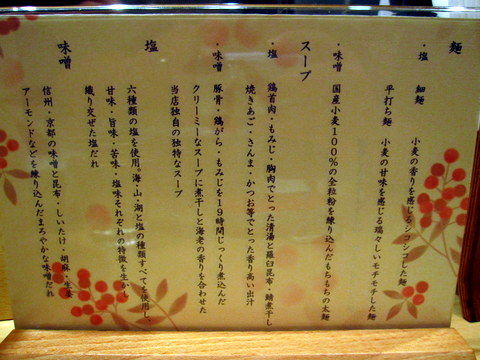 麺
・塩　細麺　小麦の香りを感じるシコシコした麺
平打ち麺　小麦の甘味を感じる瑞々しいモチモチした麺
・味噌　国産小麦100%の全粒粉を練り込んだもちもちの太麺
スープ
・塩　鶏首肉・もみじ・胸肉でとった清湯と羅臼昆布・鯖煮干し
焼きあご・さんま・かつお等でとった香り高い出汁
・味噌　豚骨・鶏がら・もみじを19時間じっくり煮込んだ
クリーミーなスープに煮干しと海老の香りを合わせた
当店独自の独特なスープ
塩　六種類の塩を使用、海・山・湖と塩の種類すべてを使用し、
甘味・旨味・苦味・塩味それぞれの特徴を生かし
織り交ぜた塩だれ
味噌　信州・京都の味噌と昆布・しいたけ・胡麻・生姜
アーモンドなどを練り込んだまろやかな味噌だれ